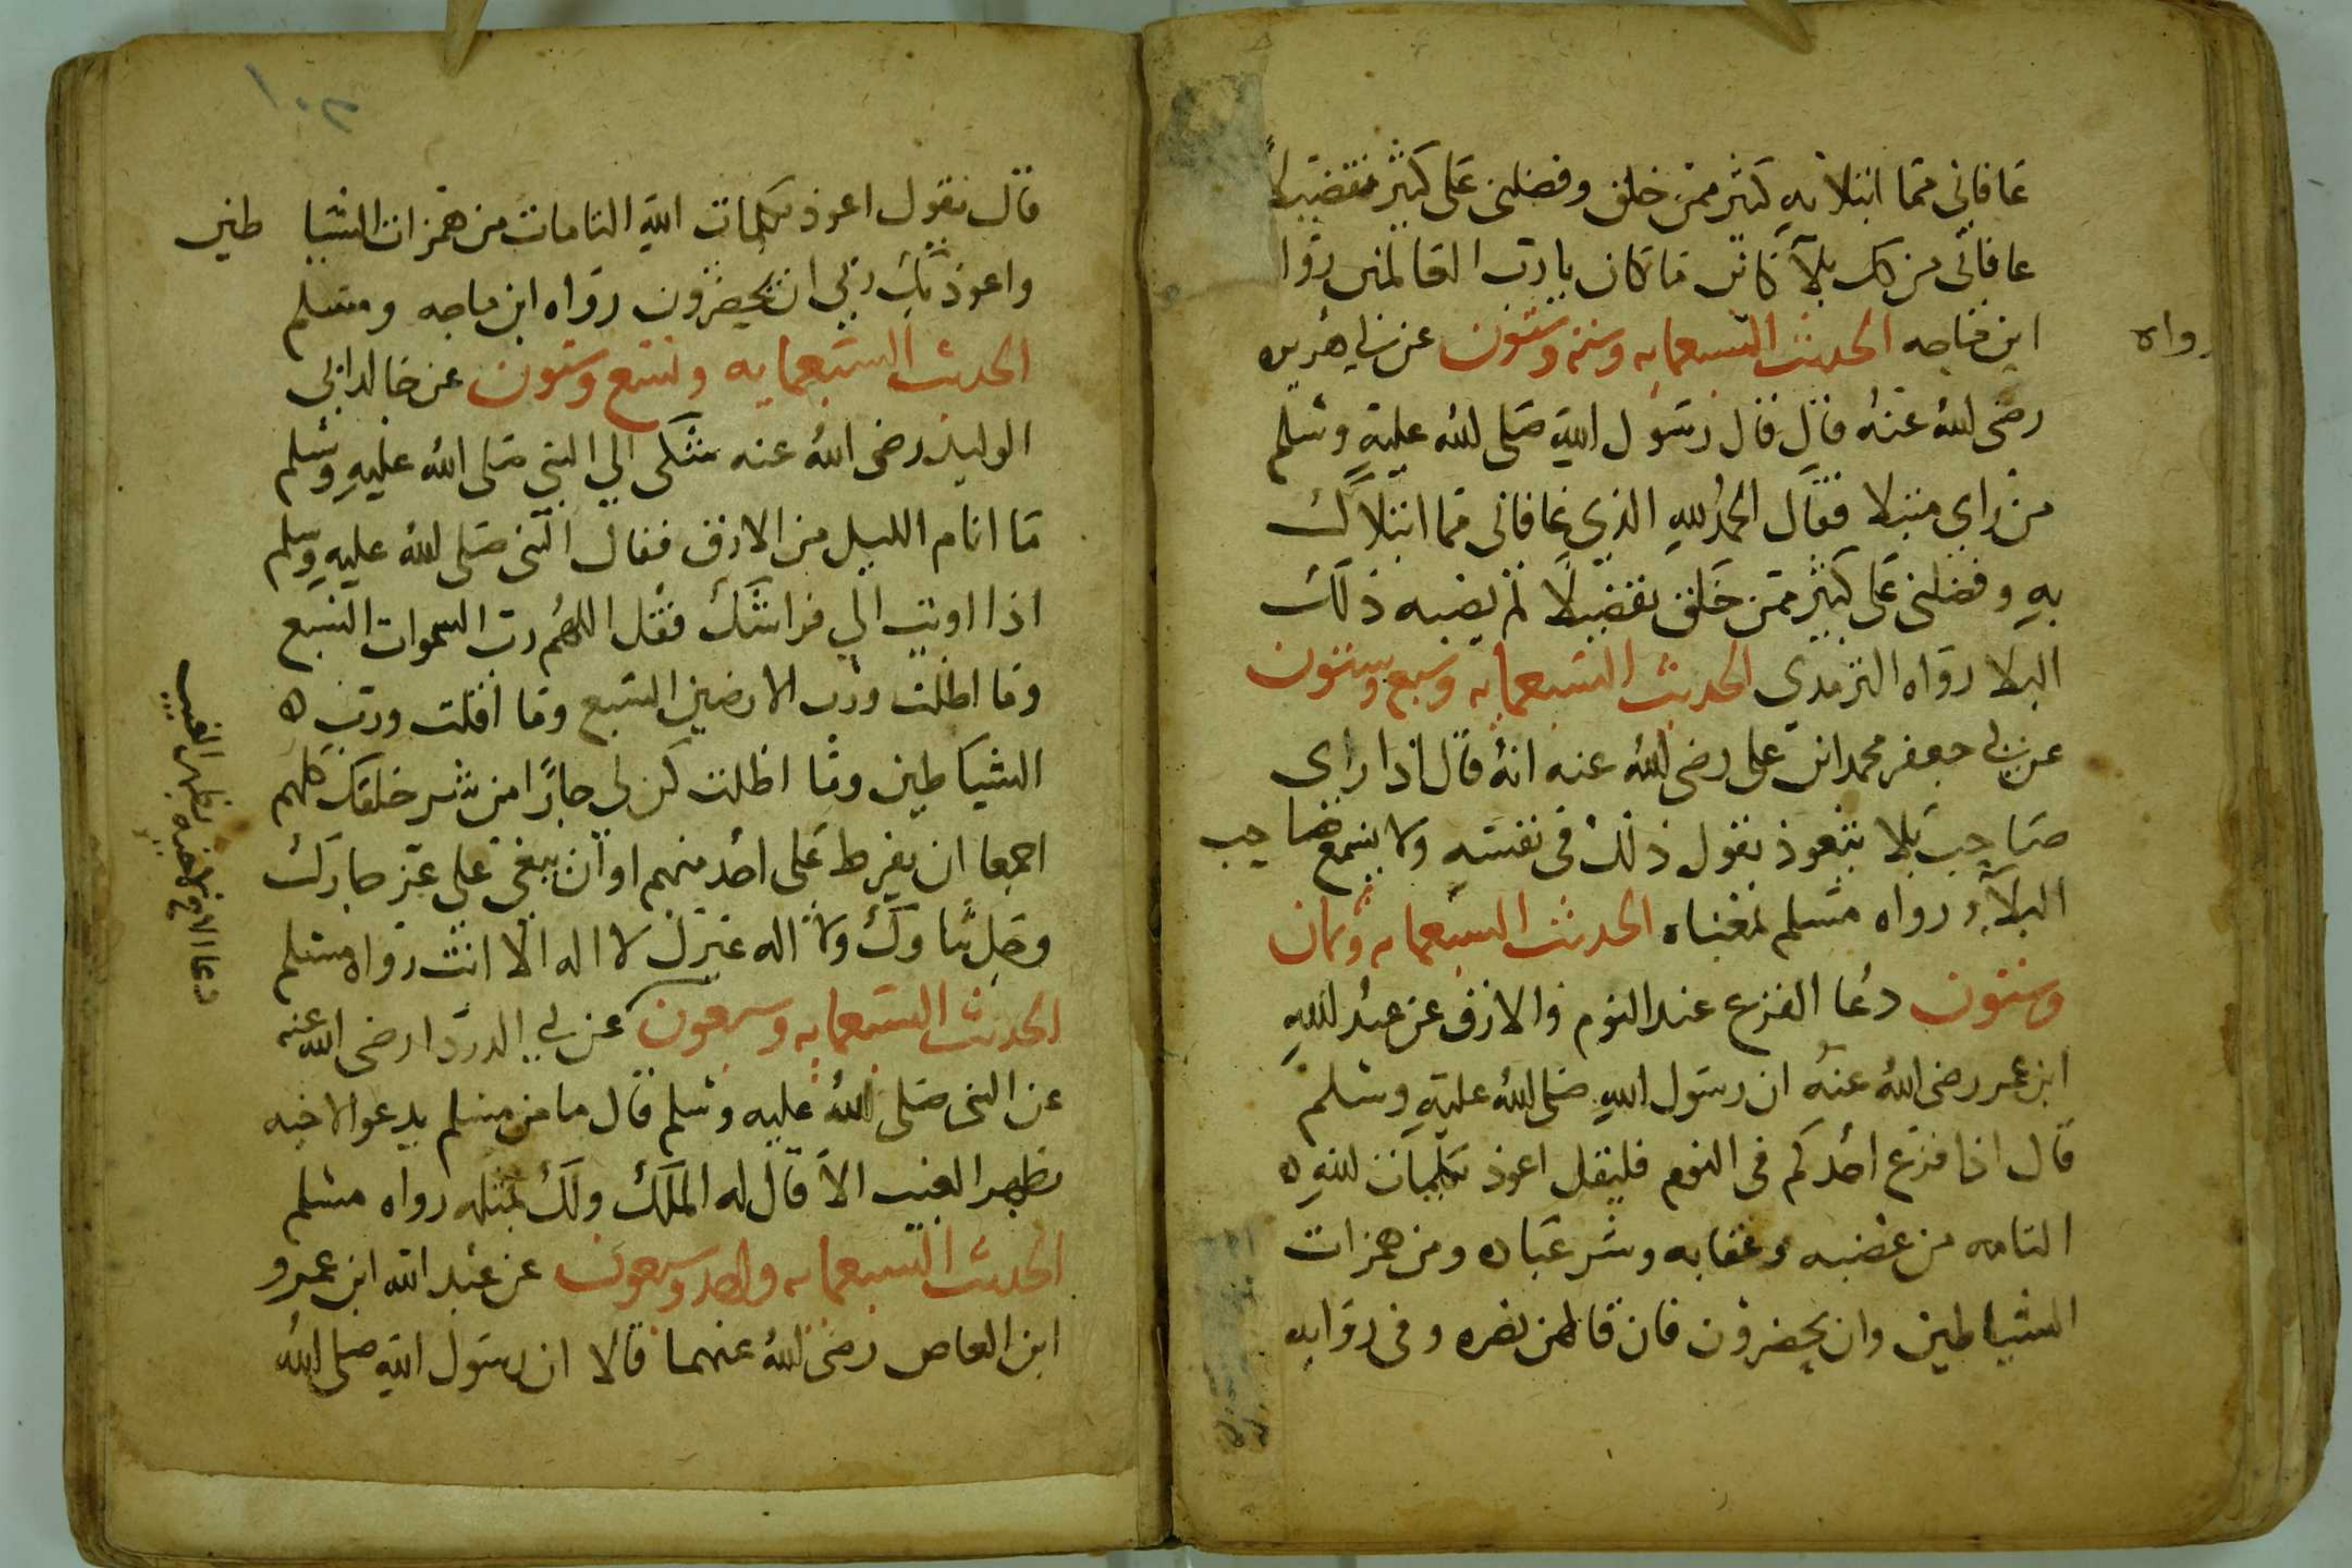 عافاني مما ابتلا به كثير ممن خلق وفضلني على كثير تفضيلاً
عافاني من كل بلآ كائن ما كان يا رب العالمين روا
رواه
ابن ماجه الحديث السبعمايه وسته وستون عن ابي هريره
رضي الله عنه قال قال رسول الله صلى الله عليه وسلم
من راي مبتلا فقال الحمد لله الذي عافاني مما ابتلاك
به وفضلني على كثير ممن خلق تفضيلا لم يصبه ذلك
البلا رواه الترمدي الحديث السبعمايه وسبع وستون
عن ابي جعفر محمد ابن على رضي الله عنه انه قال اذا راى
صاحب بلا يتعوذ يقول ذلك في نفسه ولا يسمع صاحب
البلآء رواه مسلم بمعناه الحديث السبعمايه وثمان
وستون دعا الفزع عند النوم والارق عن عبد الله
ابن عمر رضي الله عنه ان رسول الله صلى الله عليه وسلم
قال اذا فزع احدكم في النوم فليقل اعوذ بكلمات الله ه
التامه من غضبه وعقابه وشر عباده ومن همزات
الشياطين وان يحضرون فان قالهن تضره وفي روايه
١٠٣
قال يقول اعوذ بكلمات الله التامات من همزات الشيا طين
واعوذ بك ربي ان يحضرون رواه ابن ماجه ومسلم
الحديث السبعمايه وتسع وستون عن خالد ابن
الوليد رضي الله عنه شكى الي النبي صلى الله عليه وسلم
ما انام الليل من الارق فقال النبي صلى الله عليه وسلم
اذا اويت الي فراشك فقل اللهم رب السموات السبع
وما اظلت ورب الارضين السبع وما اقلت ورب ه
الشياطين وما اظلت كن لي جارًا من شر خلقك كلهم
اجمعا ان يفرط على احد منهم او ان يبغي علي عز جارك
وجل ثناوك ولا اله غيرك لا اله الا انت رواه مسلم
الحديث السبعمايه وسبعون عن ابي الدردا رضي الله عنه
عن النبي صلى الله عليه وسلم قال ما من مسلم يدعو لاخيه
بظهر الغيب الا قال له الملك ولك بمثله رواه مسلم
الحديث السبعمايه واحد وسبعون عن عبد الله ابن عمرو
ابن العاص رضي الله عنهما قالا ان رسول الله صلى الله
دعا الاخ لاخيه بظهر الغيب